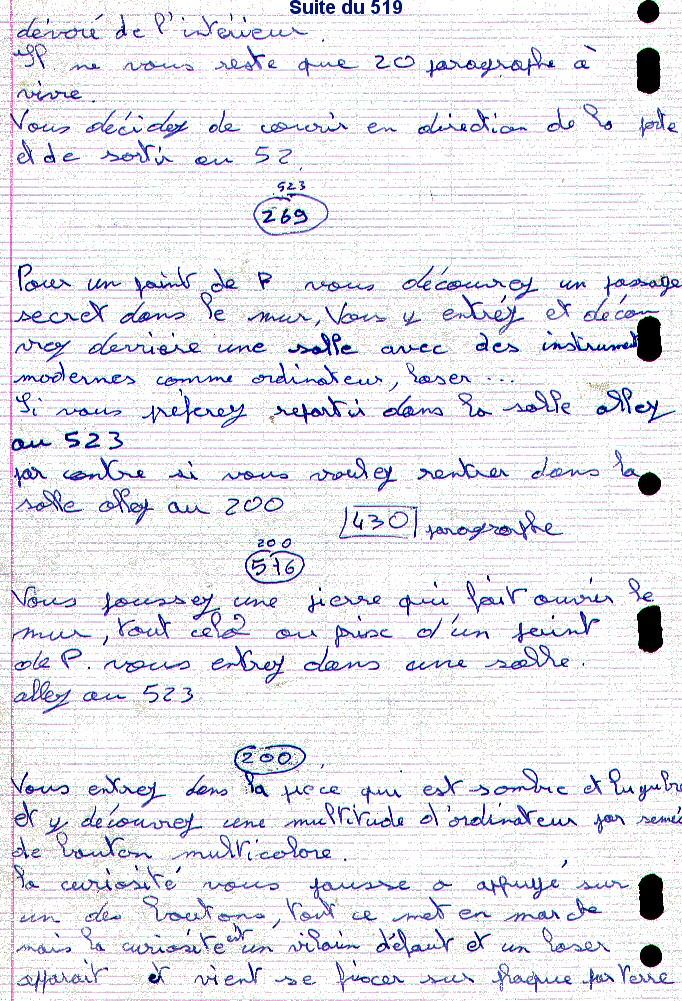 Suite du 519
dévoré de l'intérieur.
Il ne vous reste que 20 paragraphe à
vivre.
Vous décidez de courir en direction de la porte
et de sortir au 52.
523
269
Pour un point de P vous découvrez un passage
secret dans le mur, Vous y entréz et décou
vrez derriere une salle avec des instrument
modernes comme ordinateur, laser ...
Si vous préferez repartir dans la salle allez
au 523
par contre si vous voulez rentrer dans la
salle allez au 200
430 paragraphe
200
576
Vous poussez une pierre qui fait ouvrir le
mur, tout celà au prix d'un point
de P. vous entrez dans une salle.
allez au 523
200
Vous entrez dans la piece qui est sombre et lugubre
et y découvrez une multitude d'ordinateur par semé
de bouton multicolore.
la curiosité vous pousse a appuyé sur
un des boutons, tout ce met en marche
mais la curiosité est un vilain défaut et un laser
apparait et vient se fixer sur plaque par terre